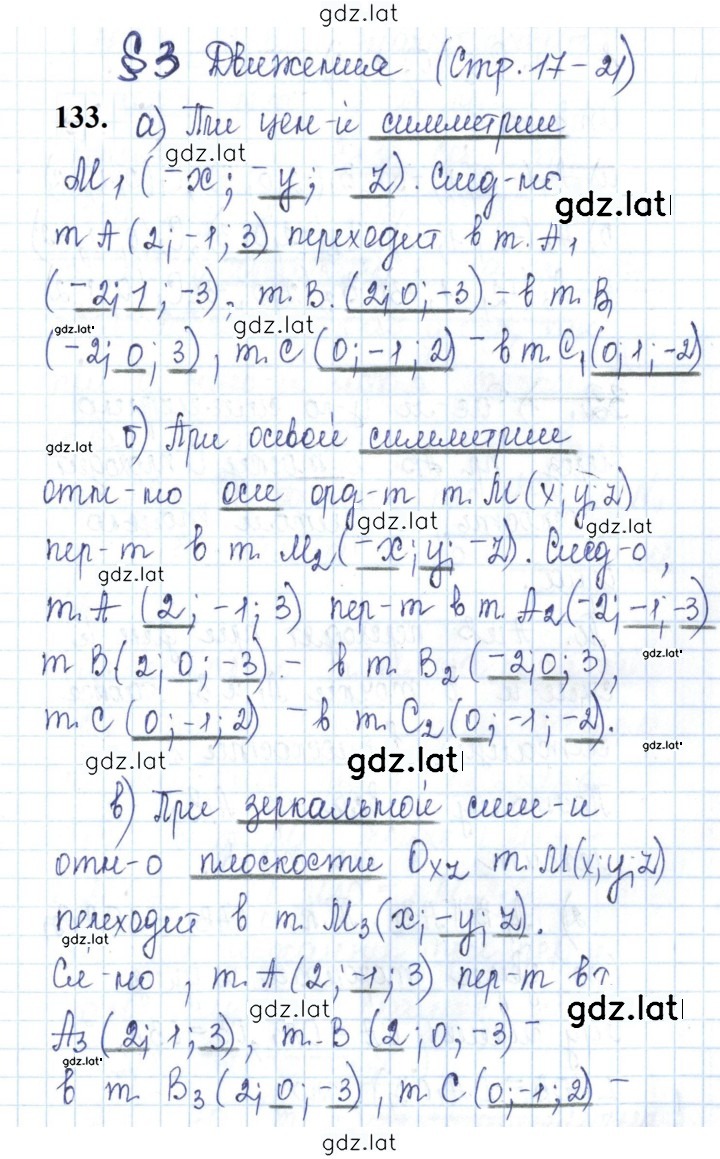 gdz.lat
§3 Движения (Стр. 17-21)
133. а) При цен-й симметрии
gdz.lat
M₁(-x; -y; -z). След-но
gdz.lat
т A(2; -1; 3) переходит в т. A₁
(-2; 1; -3), т. B. (2; 0; -3) - в т. B₁
gdz.lat gdz.lat
(-2; 0; 3), т. C (0; -1; 2) - в т. C₁(0; 1; -2)
б) При осевой симметрии
gdz.lat
отн-но оси орд-т т. M(x; y; z)
gdz.lat gdz.lat
пер-т в т. M₂(-x; y; -z). След-о,
gdz.lat
т. A (2; -1; 3) пер-т в т. A₂(-2; -1; -3)
gdz.lat
т B(2; 0; -3) - в т. B₂ (-2; 0; 3),
т. C (0; -1; 2) - в т. C₂(0; -1; -2).
gdz.lat gdz.lat gdz.lat
в) При зеркальной сим-и
отн-о плоскости Oxz т. M(x; y; z)
переходит в т. M₃(x; -y; z).
gdz.lat
Сл-но, т. A(2; -1; 3) пер-т в т
gdz.lat gdz.lat
A₃ (2; 1; 3), т. B (2; 0; -3) -
gdz.lat
в т. B₃(2; 0; -3), т C(0; -1; 2) -
gdz.lat